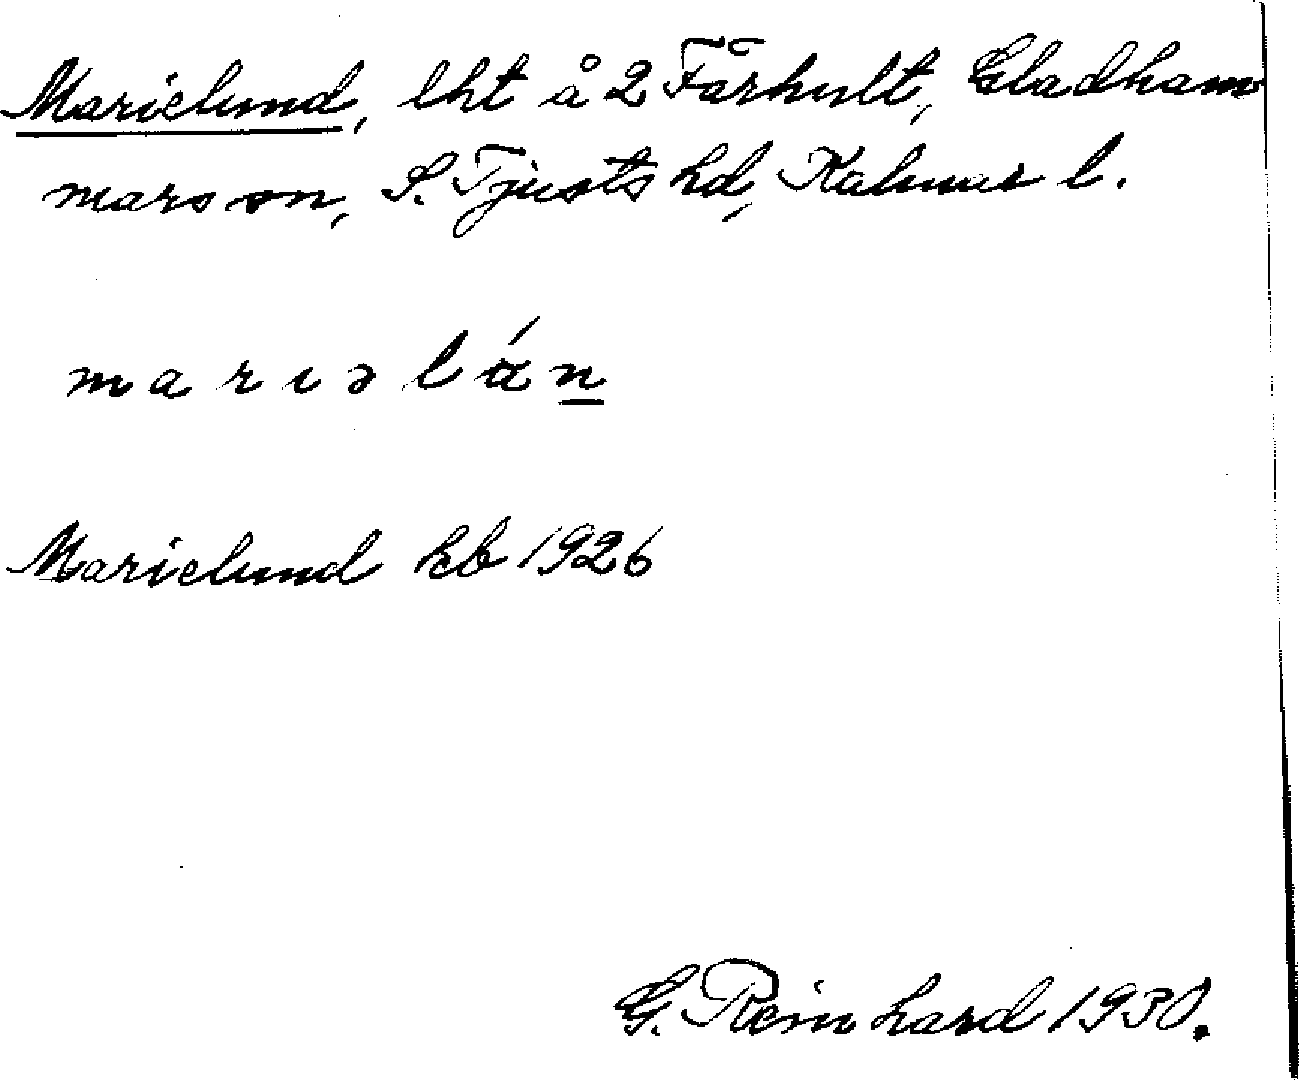 Marielund, lht å 2 Fårhult, Gladham
mars sn, S. Tjusts hd, Kalmar l.
m a r ı ə l ɑ́ n
Marielund kb 1926
G. Reinhard 1930.